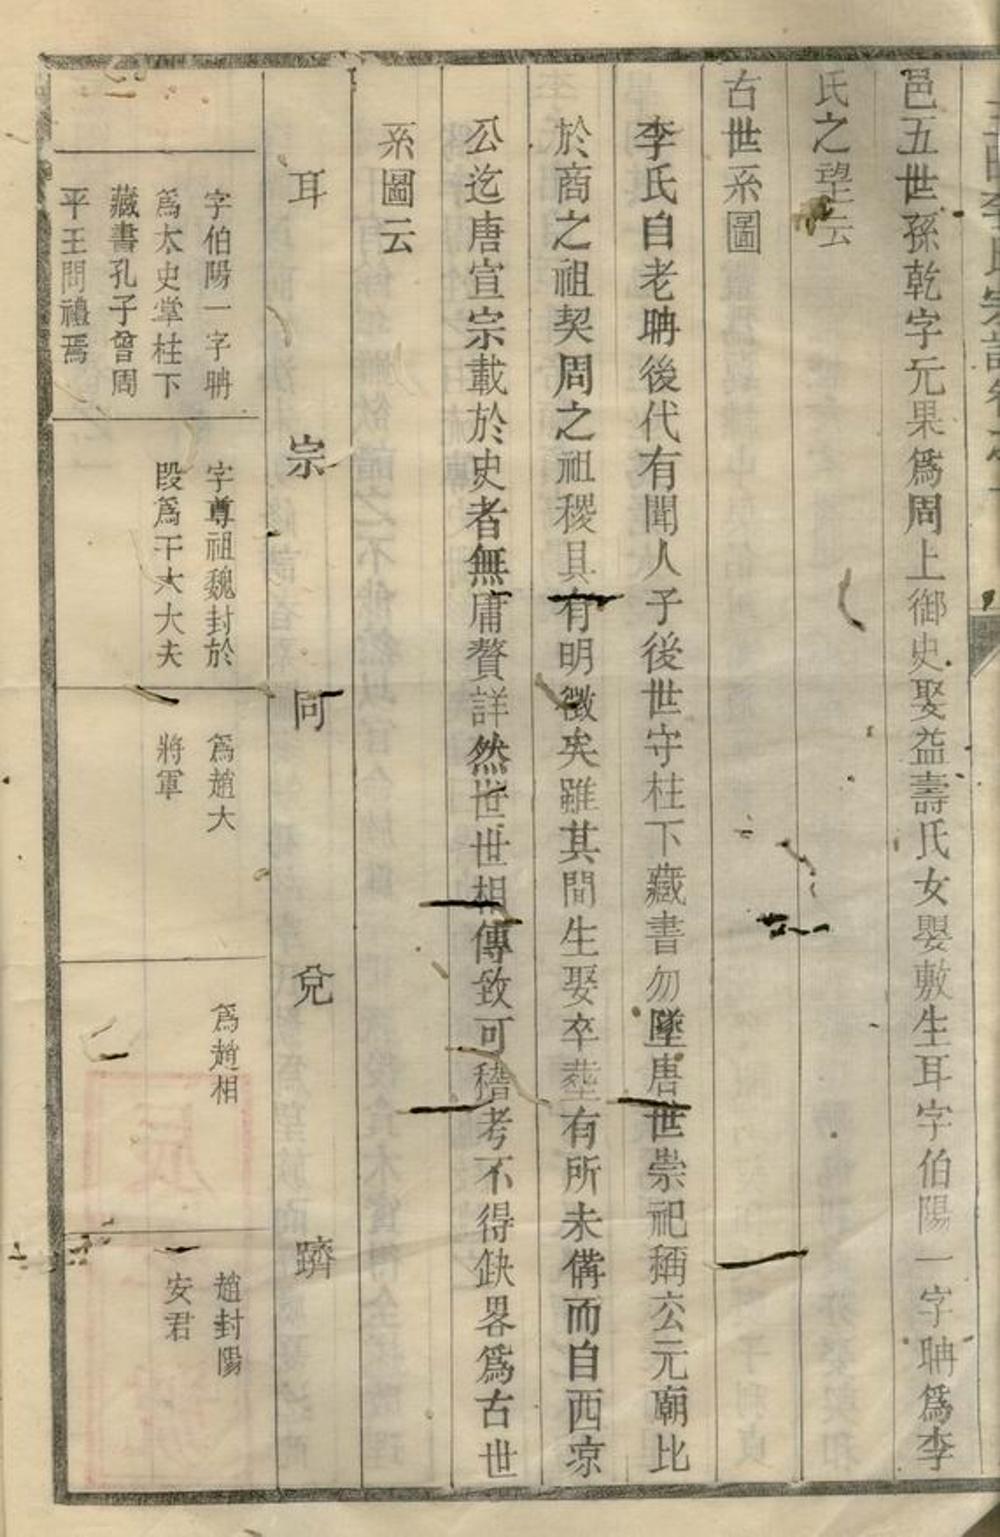 邑五世孫乾字元果爲周上御史娶益壽氏女嬰敷生耳字伯陽一字聃爲李
氏之望云
古世系圖
李氏自老聃後代有聞人子後世守柱下藏書勿墜唐世崇祀稱玄元廟比
於商之祖契周之祖稷具有明徵矣雖其間生娶卒塟有所未備而自西凉
公迄唐宣宗載於史者無庸贅詳然世世相傳致可稽考不得缺畧爲古世
系圖云
耳
宗
同
兌
躋
字伯陽一字聃
爲太史掌柱下
藏書孔子曾周
平王問禮焉
字尊祖魏封於
段爲干大大夫
爲趙大
將軍
爲趙相
趙封陽
安君